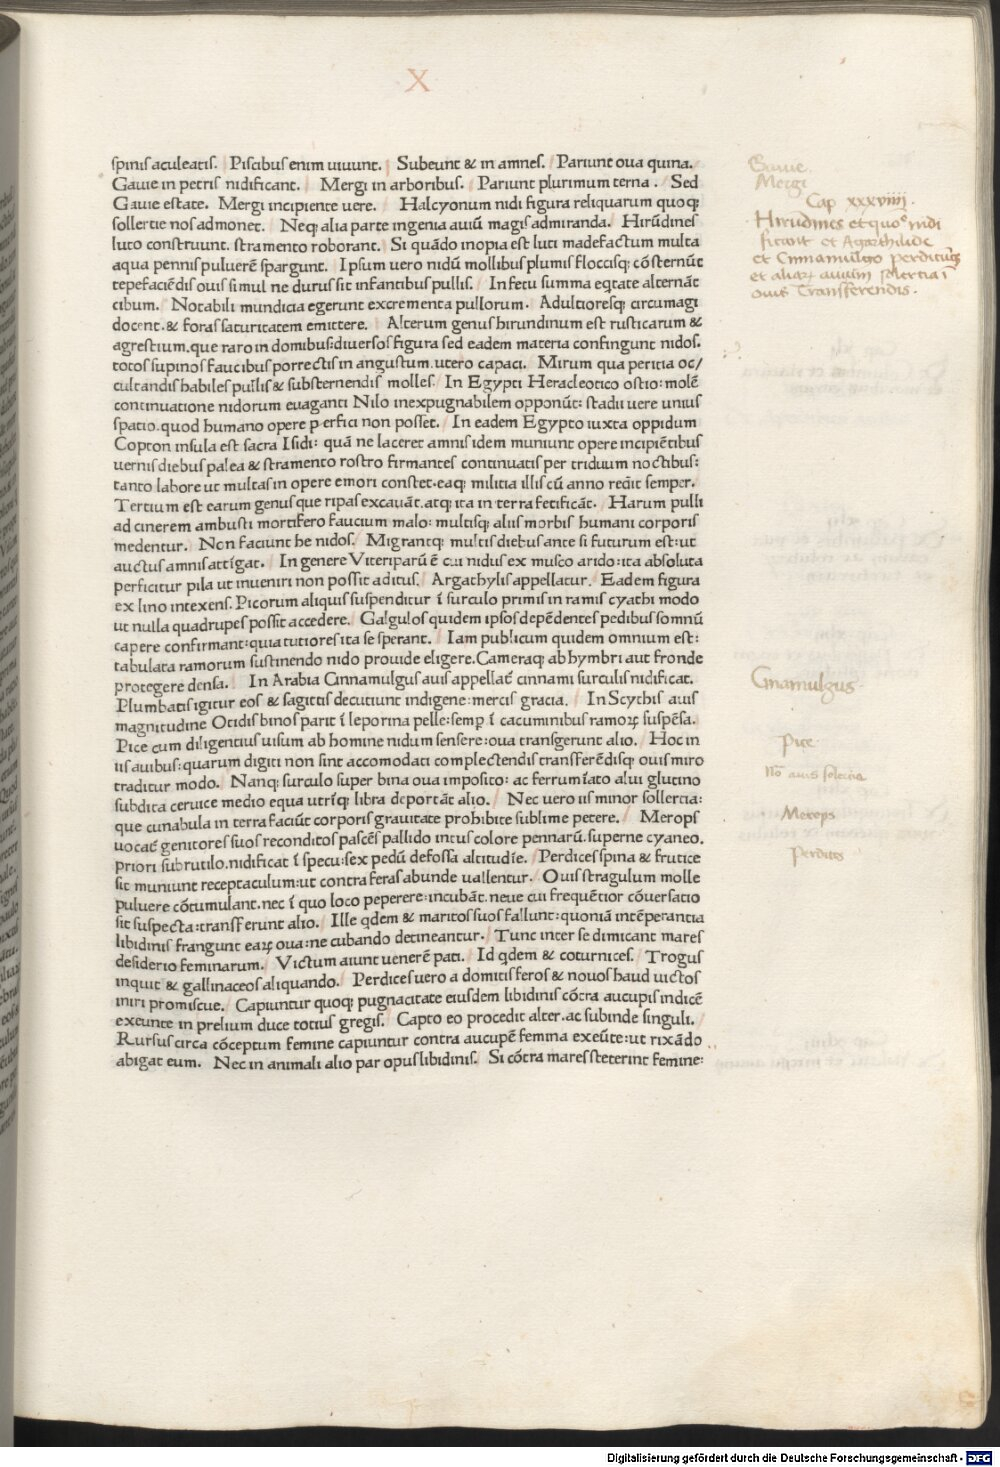 X
spinis aculeatis. Piscibus enim uiuunt. Subeunt & in amnes. Pariunt oua quina.
Gauie in petris nidificant. Mergi in arboribus. Pariunt plurimum terna. Sed
Gauie estate. Mergi incipiente uere. Halcyonum nidi figura reliquarum quoqꝫ
sollertie nos admonet. Neqꝫ alia parte ingenia auiū magis admiranda. Hirūdines
luto construunt. stramento roborant. Si quādo inopia est luti madefactum multa
aqua pennis puluerē spargunt. Ipsum uero nidū mollibus plumis floccisqꝫ cōsternūt
tepefaciēdis ouis simul ne durus sit infantibus pullis. In fetu summa eqtate alternāt
cibum. Notabili mundicia egerunt excrementa pullorum. Adultioresqꝫ circumagi
docent. & foras saturitatem emittere. Alterum genus hirundinum est rusticarum &
agrestium. que raro in domibus: diuersos figura sed eadem materia confingunt nidos.
totos supinos faucibus porrectis in angustum. utero capaci. Mirum qua peritia oc/
cultandis habiles pullis & substernendis molles. In Egypti Heracleotico ostio: molē
continuatione nidorum euaganti Nilo inexpugnabilem opponūt: stadii uere unius
spatio. quod humano opere perfici non posset. In eadem Egypto iuxta oppidum
Copton insula est sacra Isidi: quā ne laceret amnis idem muniunt opere incipiētibus
uernis diebus palea & stramento rostro firmantes continuatis per triduum noctibus:
tanto labore ut multas in opere emori constet. eaqꝫ militia illis cū anno redit semper.
Tertium est earum genus que ripas excauāt. atqꝫ ita in terra fetificāt. Harum pulli
ad cinerem ambusti mortifero faucium malo: multisqꝫ aliis morbis humani corporis
medentur. Non faciunt he nidos. Migrantqꝫ multis diebus ante si futurum est: ut
auctus amnis attīgat. In genere Viteriparū ē cui nidus ex musco arido: ita absoluta
perficitur pila ut inueniri non possit aditus. Argathylis appellatur. Eadem figura
ex lino intexens. Picorum aliquis suspenditur ī surculo primis in ramis cyathi modo
ut nulla quadrupes possit accedere. Galgulos quidem ipsos depēdentes pedibus somnū
capere confirmant: quia tutiores ita se sperant. Iam publicum quidem omnium est:
tabulata ramorum sustinendo nido prouide eligere. Cameraqꝫ ab hymbri aut fronde
protegere densa. In Arabia Cinnamulgus auis appellat̄ cinnami surculis nidificat.
Plumbatis igitur eos & sagittis decutiunt indigene: mercis gracia. In Scythis auis
magnitudine Otidis binos parit ī leporina pelle: semp ī cacuminibus ramoꝝ suspēsa.
Pice cum diligentius uisum ab homine nidum sensere: oua transgerunt alio. Hoc in
iis auibus: quarum digiti non sint accomodati complectendis transferēdisqꝫ ouis miro
traditur modo. Nanqꝫ surculo super bina oua imposito: ac ferrumīato alui glutino
subdita ceruice medio equa utrīqꝫ libra deportāt alio. Nec uero iis minor sollertia:
que cunabula in terra faciūt corporis grauitate prohibite sublime petere. Merops
uocat̄ genitores suos reconditos pascēs pallido intus colore pennarū. superne cyaneo.
priori subrutilo. nidificat ī specu: sex pedū defossa altitudīe. Perdices spina & frutice
sic muniunt receptaculum: ut contra feras abunde uallentur. Ouis stragulum molle
puluere cōtumulant. nec ī quo loco peperere: incubāt. neue cui frequētior cōuersatio
sit suspecta: transferunt alio. Ille qdem & maritos suos fallunt: quoniā intēperantia
libidinis frangunt eaꝝ oua: ne cubando detineantur. Tunc inter se dimicant mares
desiderio feminarum. Victum aiunt uenerē pati. Id qdem & coturnices. Trogus
inquit & gallinaceos aliquando. Perdices uero a domitis feros & nouos haud uictos
iniri promiscue. Capiuntur quoqꝫ pugnacitate eiusdem libidinis cōtra aucupis indicē
exeunte in prelium duce totius gregis. Capto eo procedit alter. ac subinde singuli.
Rursus circa cōceptum femine capiuntur contra aucupē femina exeūte: ut rixādo
abigat eum. Nec in animali alio par opus libidinis. Si cōtra mares steterint femine:
Gauie.
Mergi
Cap xxxviiii.
Hirudines et quo nidi
ficant et Agathilide
et Cinnamulgo perdicibus
et aliaꝝ auium solertia ī
ouis Transferendis.
Cinamulgus.
Pice
auis solertia
Merops
Perdices
Digitalisierung gefördert durch die Deutsche Forschungsgemeinschaft - DFG